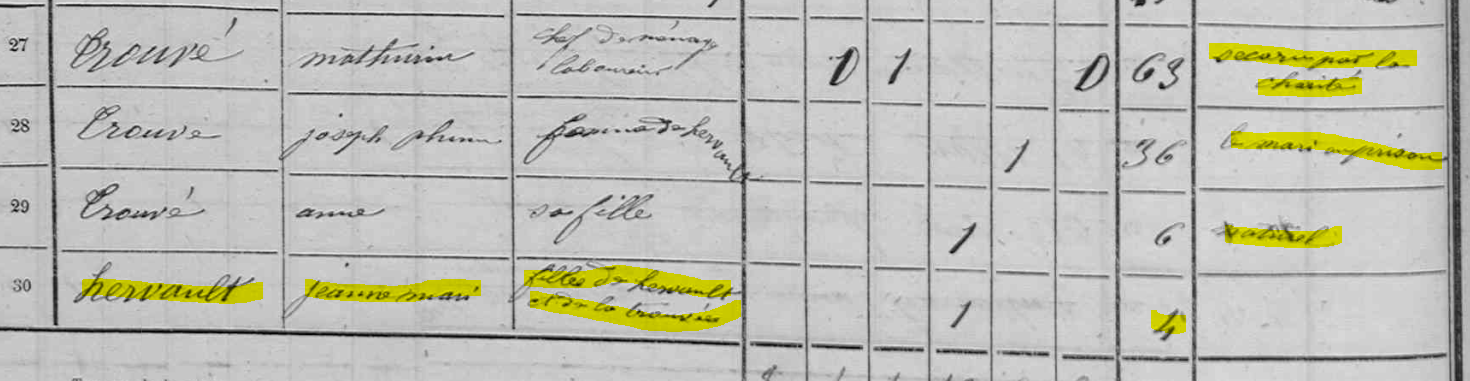 27 Trouvé mathurin chef de ménage laboureur D 1 D 63 secouru par la charité
28 Trouvé joseph femme de hervault 1 36 le mari en prison
29 Trouvé anne sa fille 1 6 naturel
30 hervault jeanne mari filles de hervault et de la trouvée 1 4